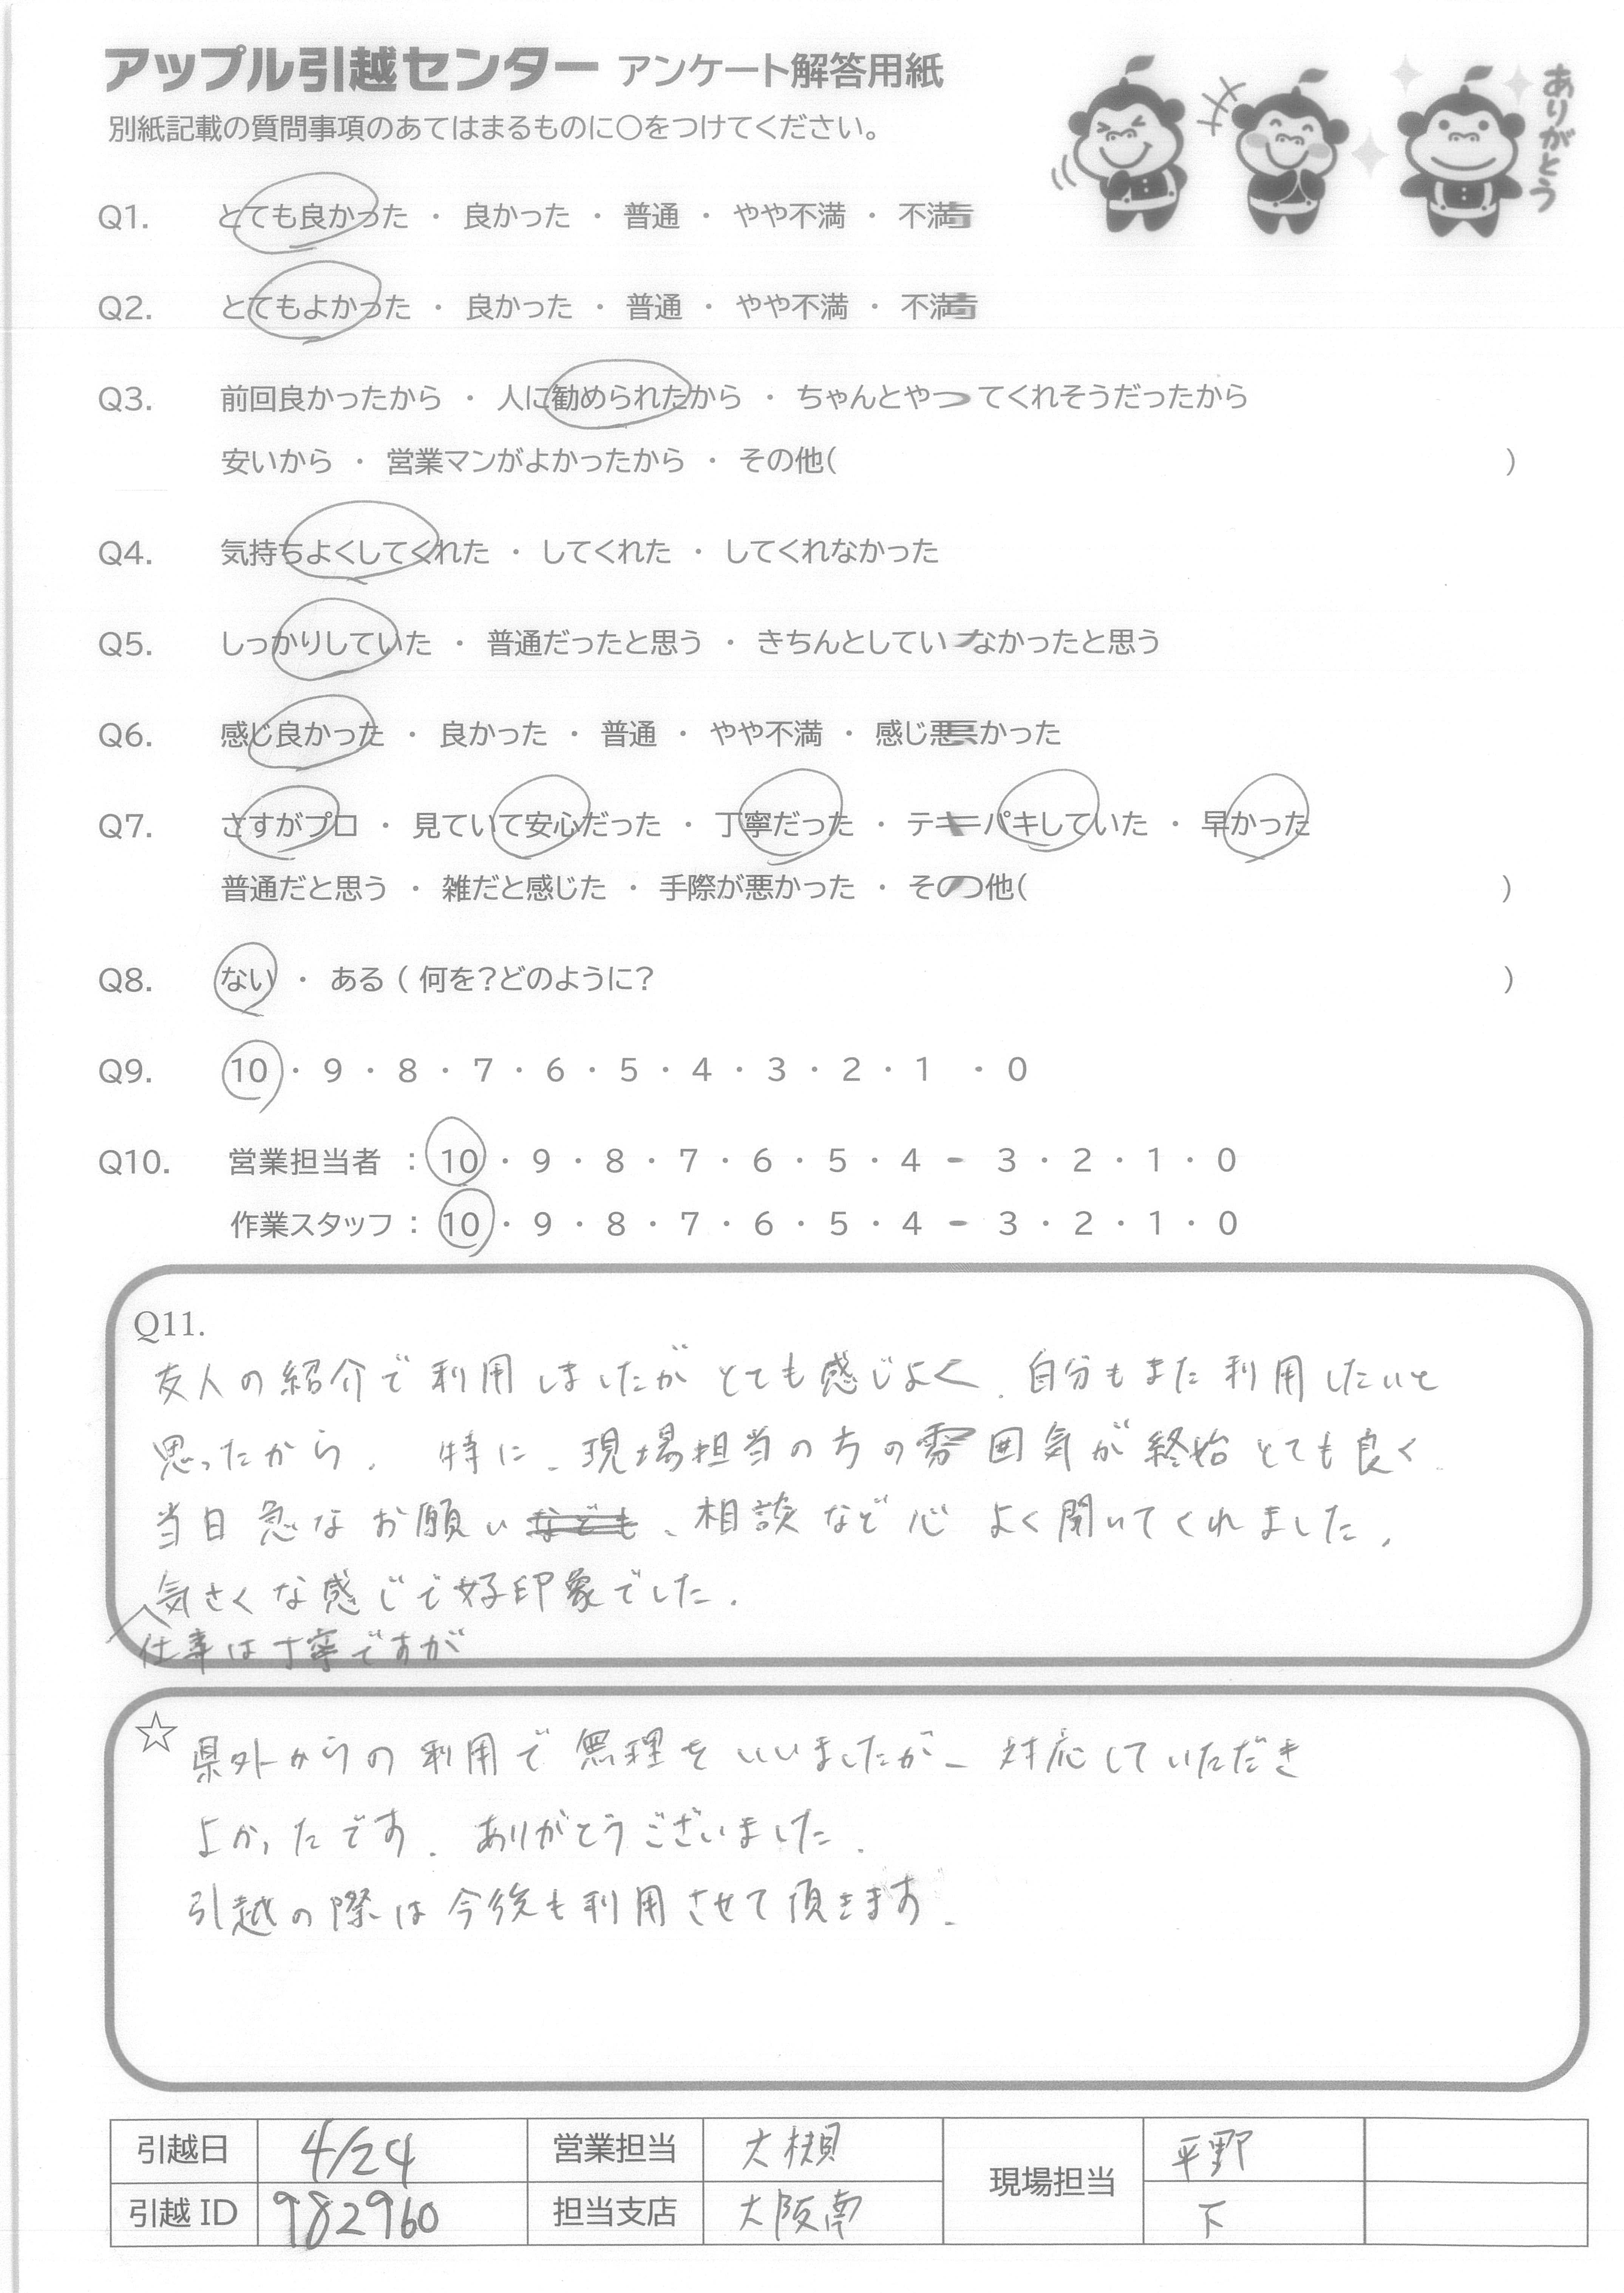 アップル引越センター アンケート解答用紙
別紙記載の質問事項のあてはまるものに○をつけてください。
ありがとう
Q1. とても良かった ・ 良かった ・ 普通 ・ やや不満 ・ 不満
Q2. とてもよかった ・ 良かった ・ 普通 ・ やや不満 ・ 不満
Q3. 前回良かったから ・ 人に勧められたから ・ ちゃんとやってくれそうだったから
安いから ・ 営業マンがよかったから ・ その他( )
Q4. 気持ちよくしてくれた ・ してくれた ・ してくれなかった
Q5. しっかりしていた ・ 普通だったと思う ・ きちんとしていなかったと思う
Q6. 感じ良かった ・ 良かった ・ 普通 ・ やや不満 ・ 感じ悪かった
Q7. さすがプロ ・ 見ていて安心だった ・ 丁寧だった ・ テキパキしていた ・ 早かった
普通だと思う ・ 雑だと感じた ・ 手際が悪かった ・ その他( )
Q8. ない ・ ある ( 何を?どのように? )
Q9. 10 ・ 9 ・ 8 ・ 7 ・ 6 ・ 5 ・ 4 ・ 3 ・ 2 ・ 1 ・ 0
Q10. 営業担当者 : 10 ・ 9 ・ 8 ・ 7 ・ 6 ・ 5 ・ 4 ・ 3 ・ 2 ・ 1 ・ 0
作業スタッフ : 10 ・ 9 ・ 8 ・ 7 ・ 6 ・ 5 ・ 4 ・ 3 ・ 2 ・ 1 ・ 0
Q11.
友人の紹介で利用しましたがとても感じよく、自分もまた利用したいと
思ったから。 特に、現場担当の方の雰囲気が終始とても良く
当日急なお願いなども、相談など心よく聞いてくれました。
気さくな感じで好印象でした。
仕事は丁寧ですが
☆ 県外からの利用で無理をいいましたが、対応していただき
よかったです。ありがとうございました。
引越の際は今後も利用させて頂きます。
引越日 4/24 営業担当 大槻 現場担当 平野
引越ID 982960 担当支店 大阪南 下